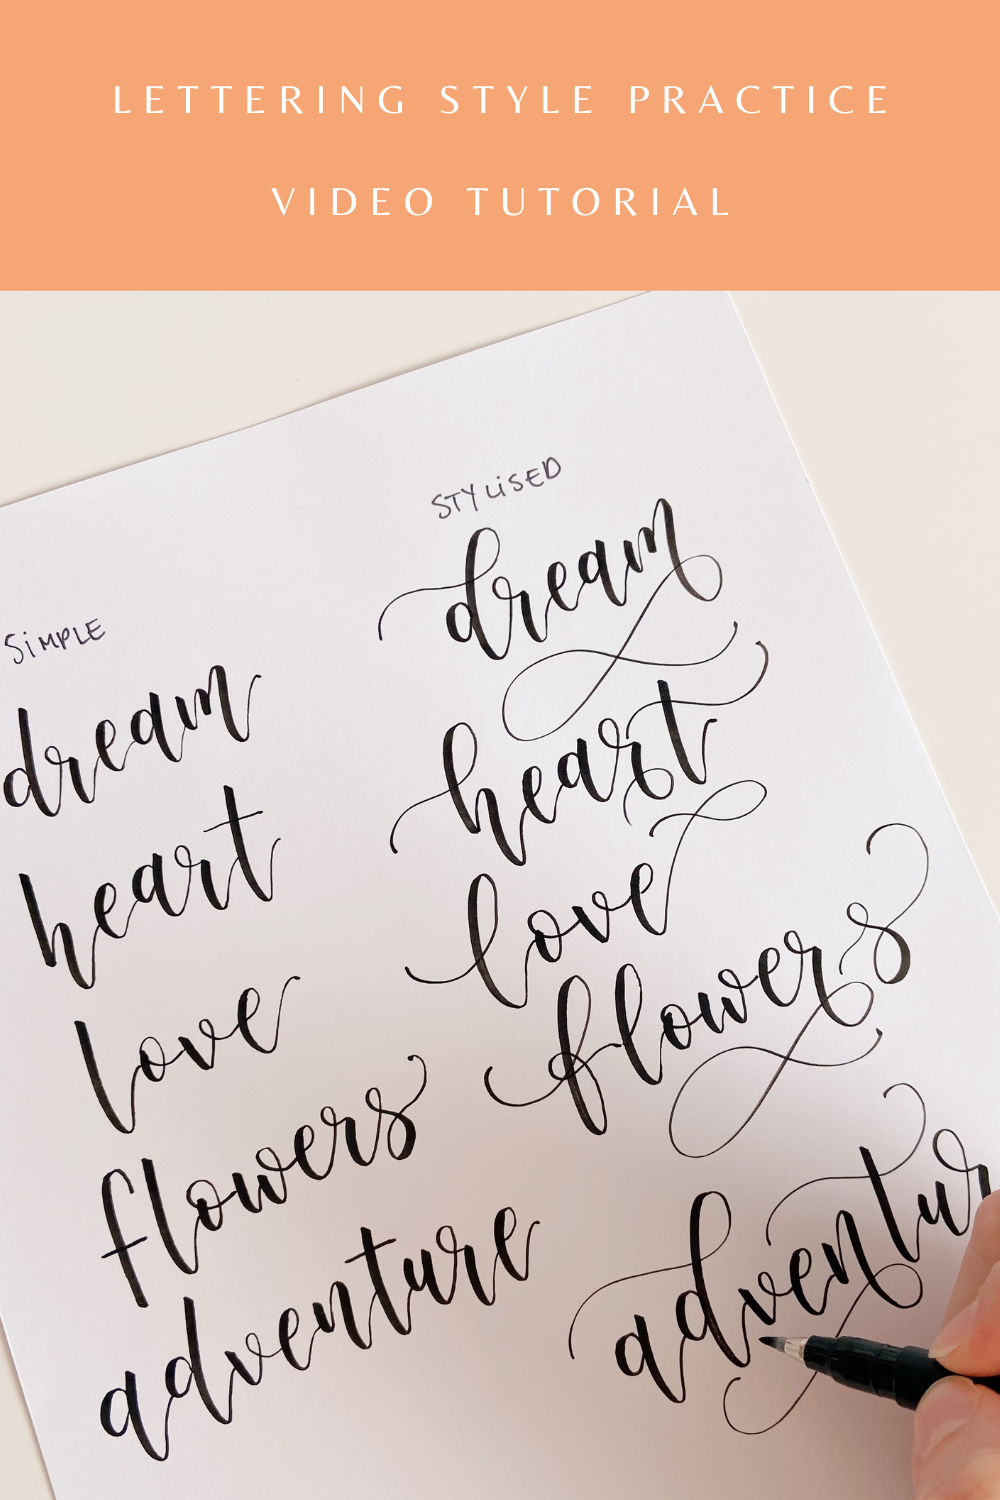 LETTERING STYLE PRACTICE
VIDEO TUTORIAL
SIMPLE
dream
heart
love
flowers
adventure
STYLISED
dream
heart
love
flowers
adventur